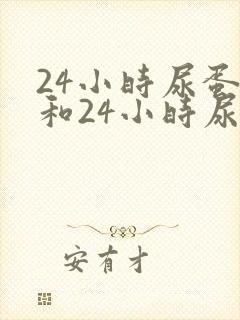 24小時尿蛋
和24小時尿
安有才